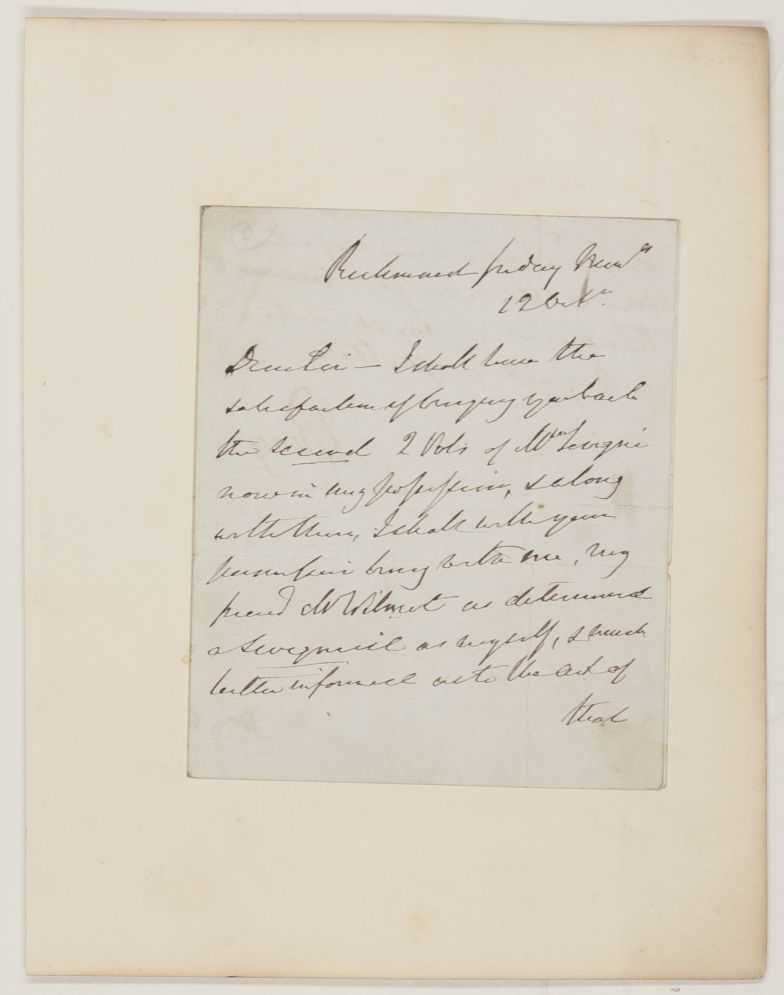 Richmond friday
12 Octr.
Dear Sir — I shall have the
satisfaction of bringing you back
the second 2 Vols of Me Sevigné
now in my possession, & along
with them, I shall with your
permission bring with me, my
friend Mr Wilmot as determined
a Sevigneist as myself, & much
better informed as to the
that